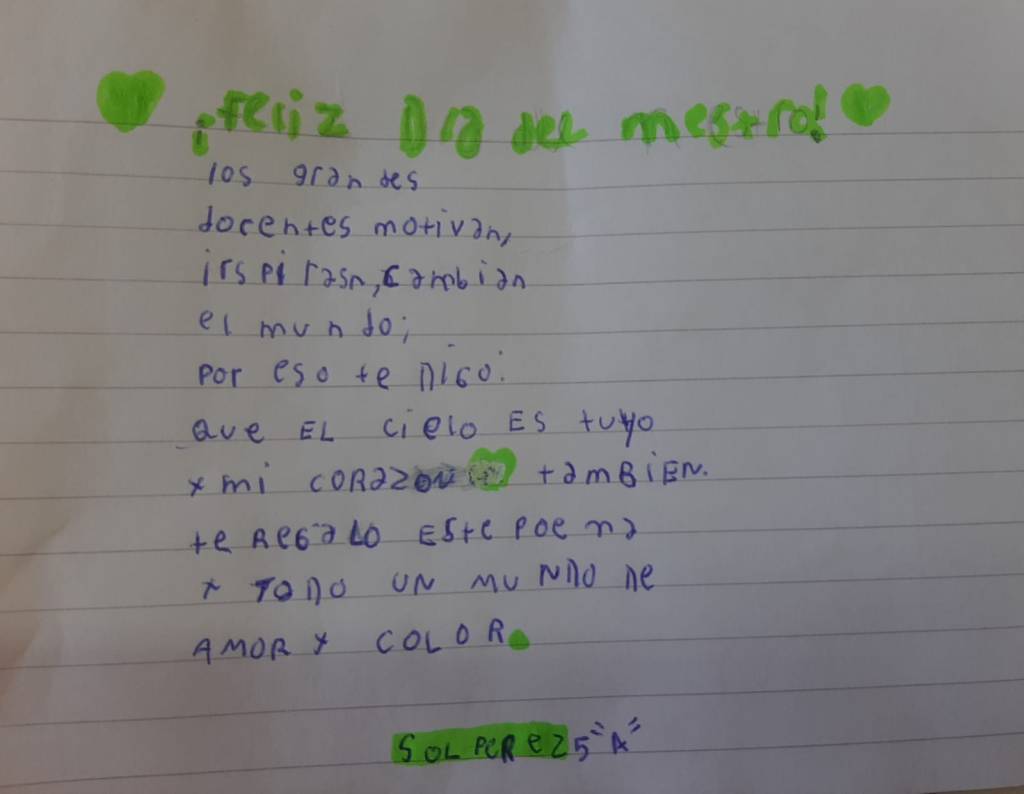 ¡feliz Dia del mestro!
los grandes
docentes motivan,
irspirasn, cambian
el mundo;
por eso te Digo:
que EL cielo ES tuyo
y mi CORazON tamBiEN.
te Regalo EStE Poema
y TODO UN MUNDO De
AMOR y COLOR.
SOL PeRez 5"A"